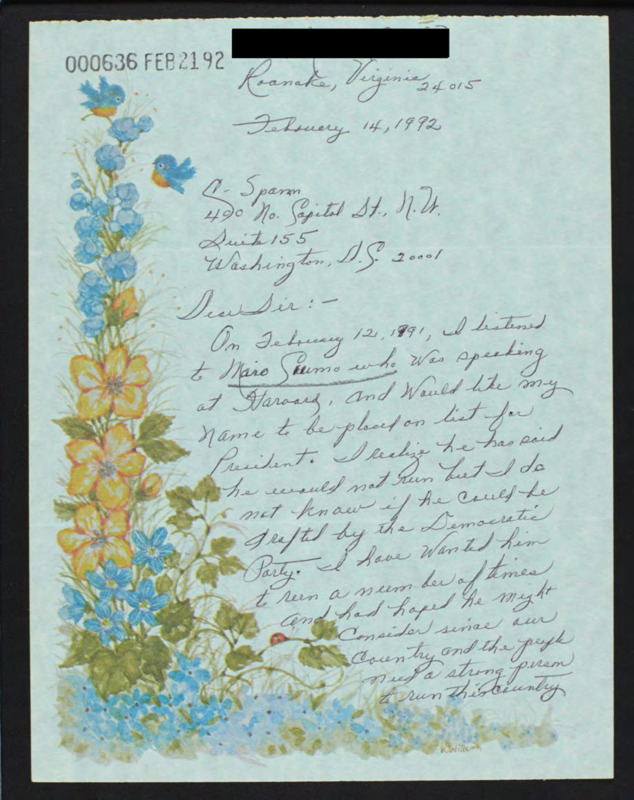 000636 FEB 21 92
Roanoke, Virginia
24015
February 14, 1992
C- Spann
400 No. Capitol St., N.W.
Suite 155
Washington, D.C. 20001
Dear Sir:-
On February 12, 1991, I listened
to Mario Cuomo who was speaking
at Harvard, and would like my
name to be placed on list for
President. I realize he has said
he would not run but I do
not know if he could be
drafted by the Democratic
Party. I have wanted him
to run a number of times
and had hoped he might
consider since our
country and the people
need a strong person
to run this country